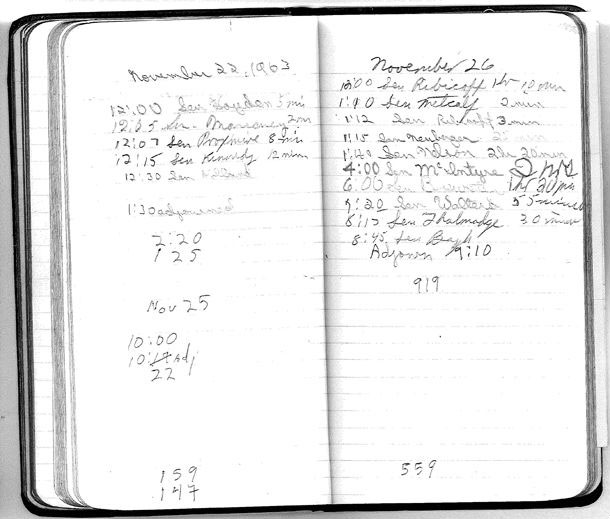 November 22, 1963
12:00 Sen Hayden 5 min
12:05 Sen. Monroney 2 min
12:07 Sen Proxmire 8 min
12:15 Sen Kennedy 12 min
12:30 Sen
1:30 adjourned
2:20
125
Nov 25
10:00
10:17 Adj
22
159
147
November 26
12:00 Sen Ribicoff 1 hr 10 min
1:10 Sen Metcalf 2 min
1:12 Sen Ribicoff 3 min
1:15 Sen Neuberger 25 min
1:40 Sen Nelson 2 hr 20 min
4:00 Sen McIntyre 2 hrs
6:00 Sen 1 hr 20 min
7:20 Sen Walters 55 minutes
8:15 Sen Thalmadge 30 minutes
8:45 Sen Bayh
Adjourn 9:10
919
559